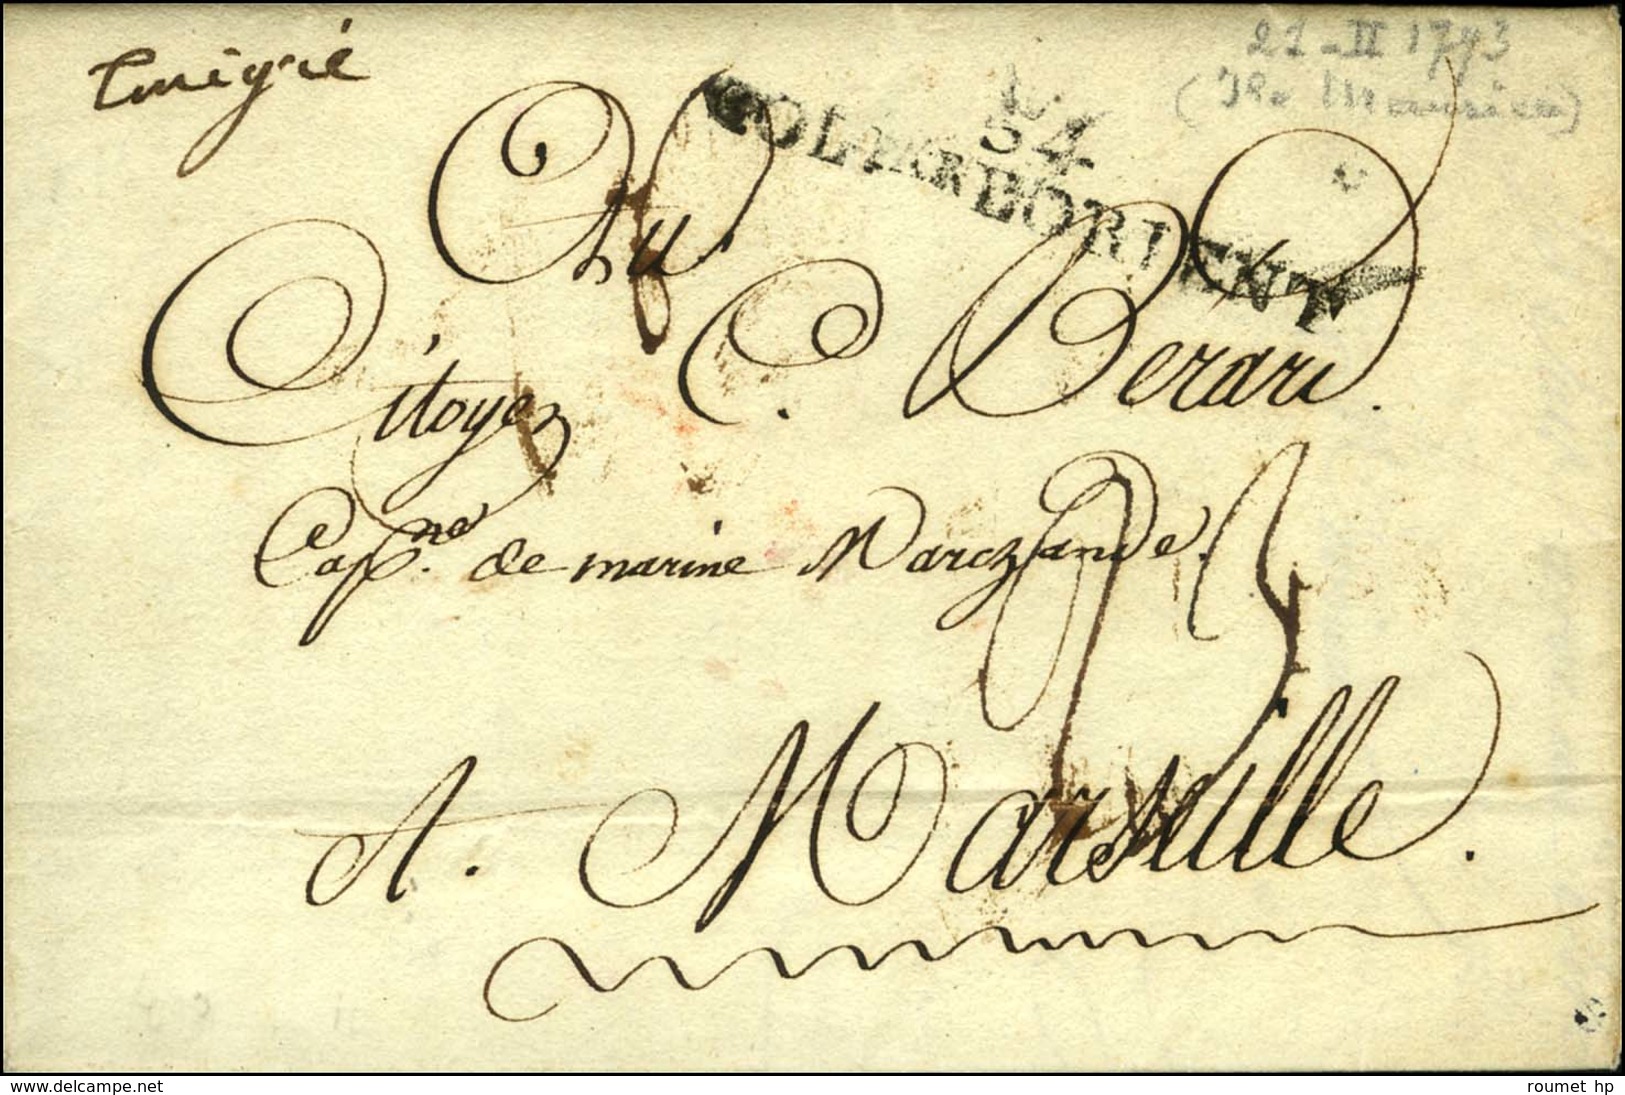 Emigré
21 - II 1793
(Ile Maurice)
54
COL.PAR LORIENT
Au
Citoyen C. Berard.
Capne. de marine Marchande.
23
A. Marseille.
www.delcampe.net
roumet hp